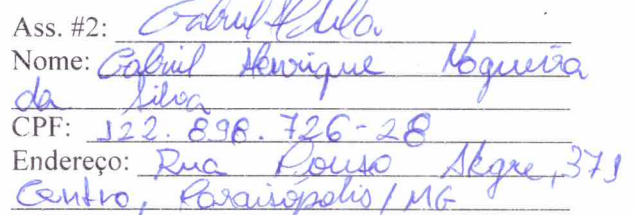 Ass. #2: Gabriel H Silva
Nome: Gabriel Henrique Nogueira
da Silva
CPF: 122.898.726-28
Endereço: Rua Pouso Alegre, 371
Centro, Paraisópolis/MG